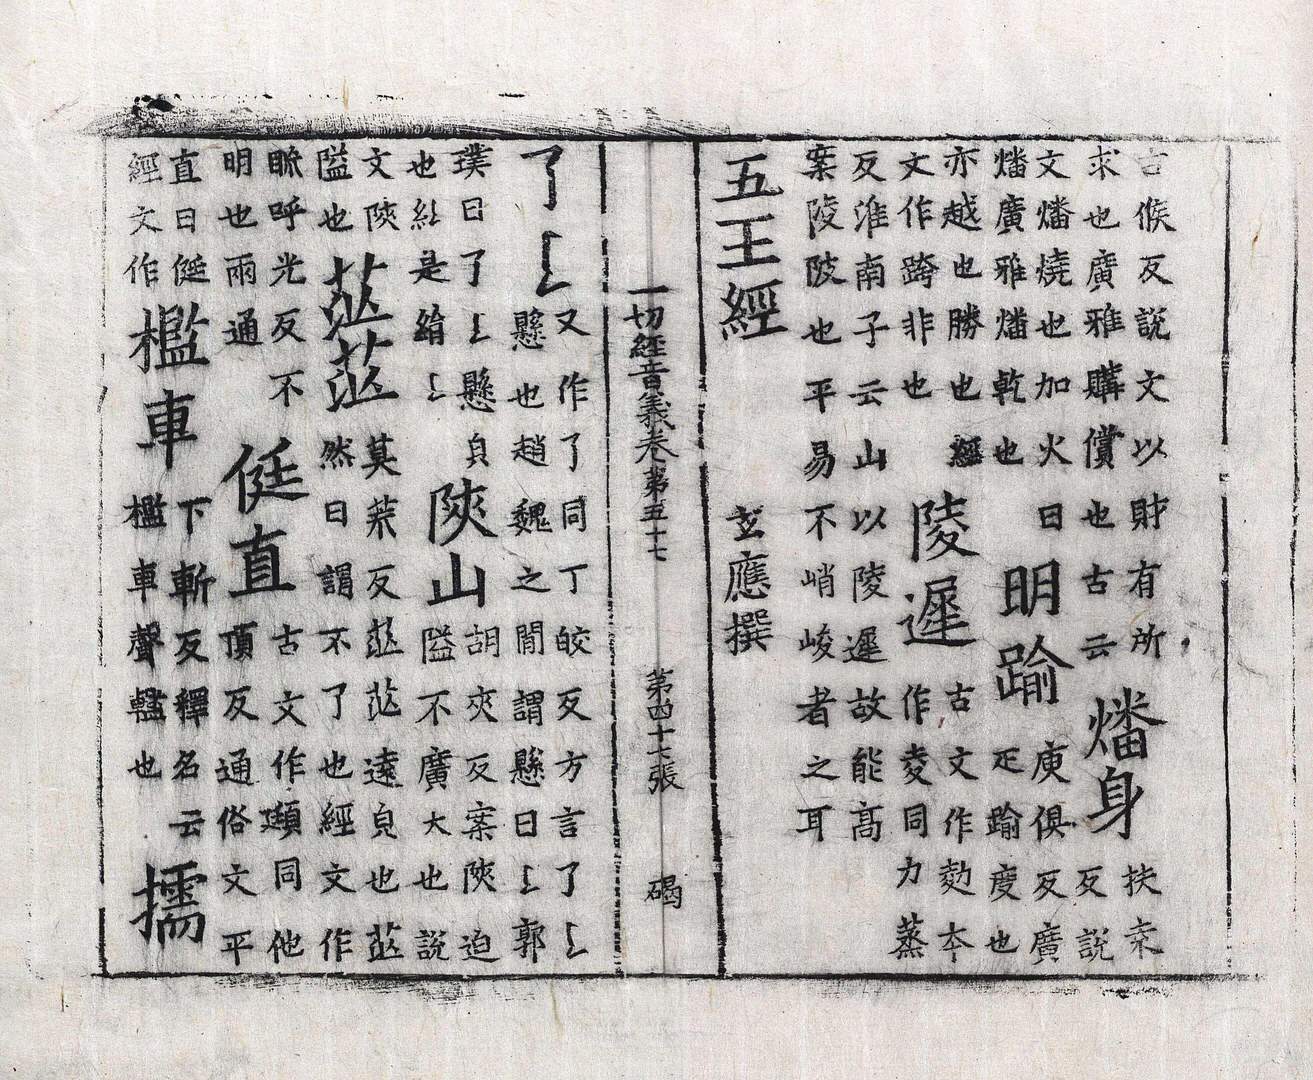 古候反說文以財有所
求也廣雅購償也古云
燔身
扶袁
反說
文燔燒也加火曰
燔廣雅燔乾也
明踰
庾俱反廣
疋踰度也
亦越也勝也經
文作跨非也
陵遲
古文作夲
作夌同力蒸
反淮南子云山以陵遲故能高
案陵陂也平易不峭峻者之耳
五王經 玄應撰
一切經音義卷第五十七 第四十七張 碣
了𠄌
又作了同丁皎反方言了𠄌
懸也趙魏之間謂懸曰𠄌郭
璞曰了𠄌懸皃
也糺是繒𠄌
陜山
胡夾反案陜迫
隘不廣大也說
文陜
隘也
茫茫
莫荒反茫茫遠皃也茫
然曰謂不了也經文作
眽呼光反不
明也兩通
侹直
古文作頲同他
頂反通俗文平
直曰侹
經文作
檻車
下斬反釋名云
檻車聲轞也
擩